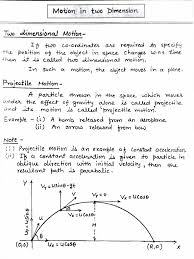 Motion in two Dimension
Two dimensional Motion-
If two co-ordinates are required to specify
the position of the object in space changes w.r.t time
then it is called two dimensional motion.
In such a motion, the object moves in a plane.
Projectile Motion-
A particle thrown in the space which moves
under the effect of gravity alone is called projectile
and its motion is called 'projectile motion'.
Example - (i) A bomb released from an aeroplane
(ii) An arrow released from bow
Note -
(i) Projectile motion is an example of constant acceleration
(ii) If a constant acceleration is given to particle in
oblique direction with initial velocity, then the
resultant path is parabolic.
Y
Vy=0
H
(0,0)
(R,0)
X